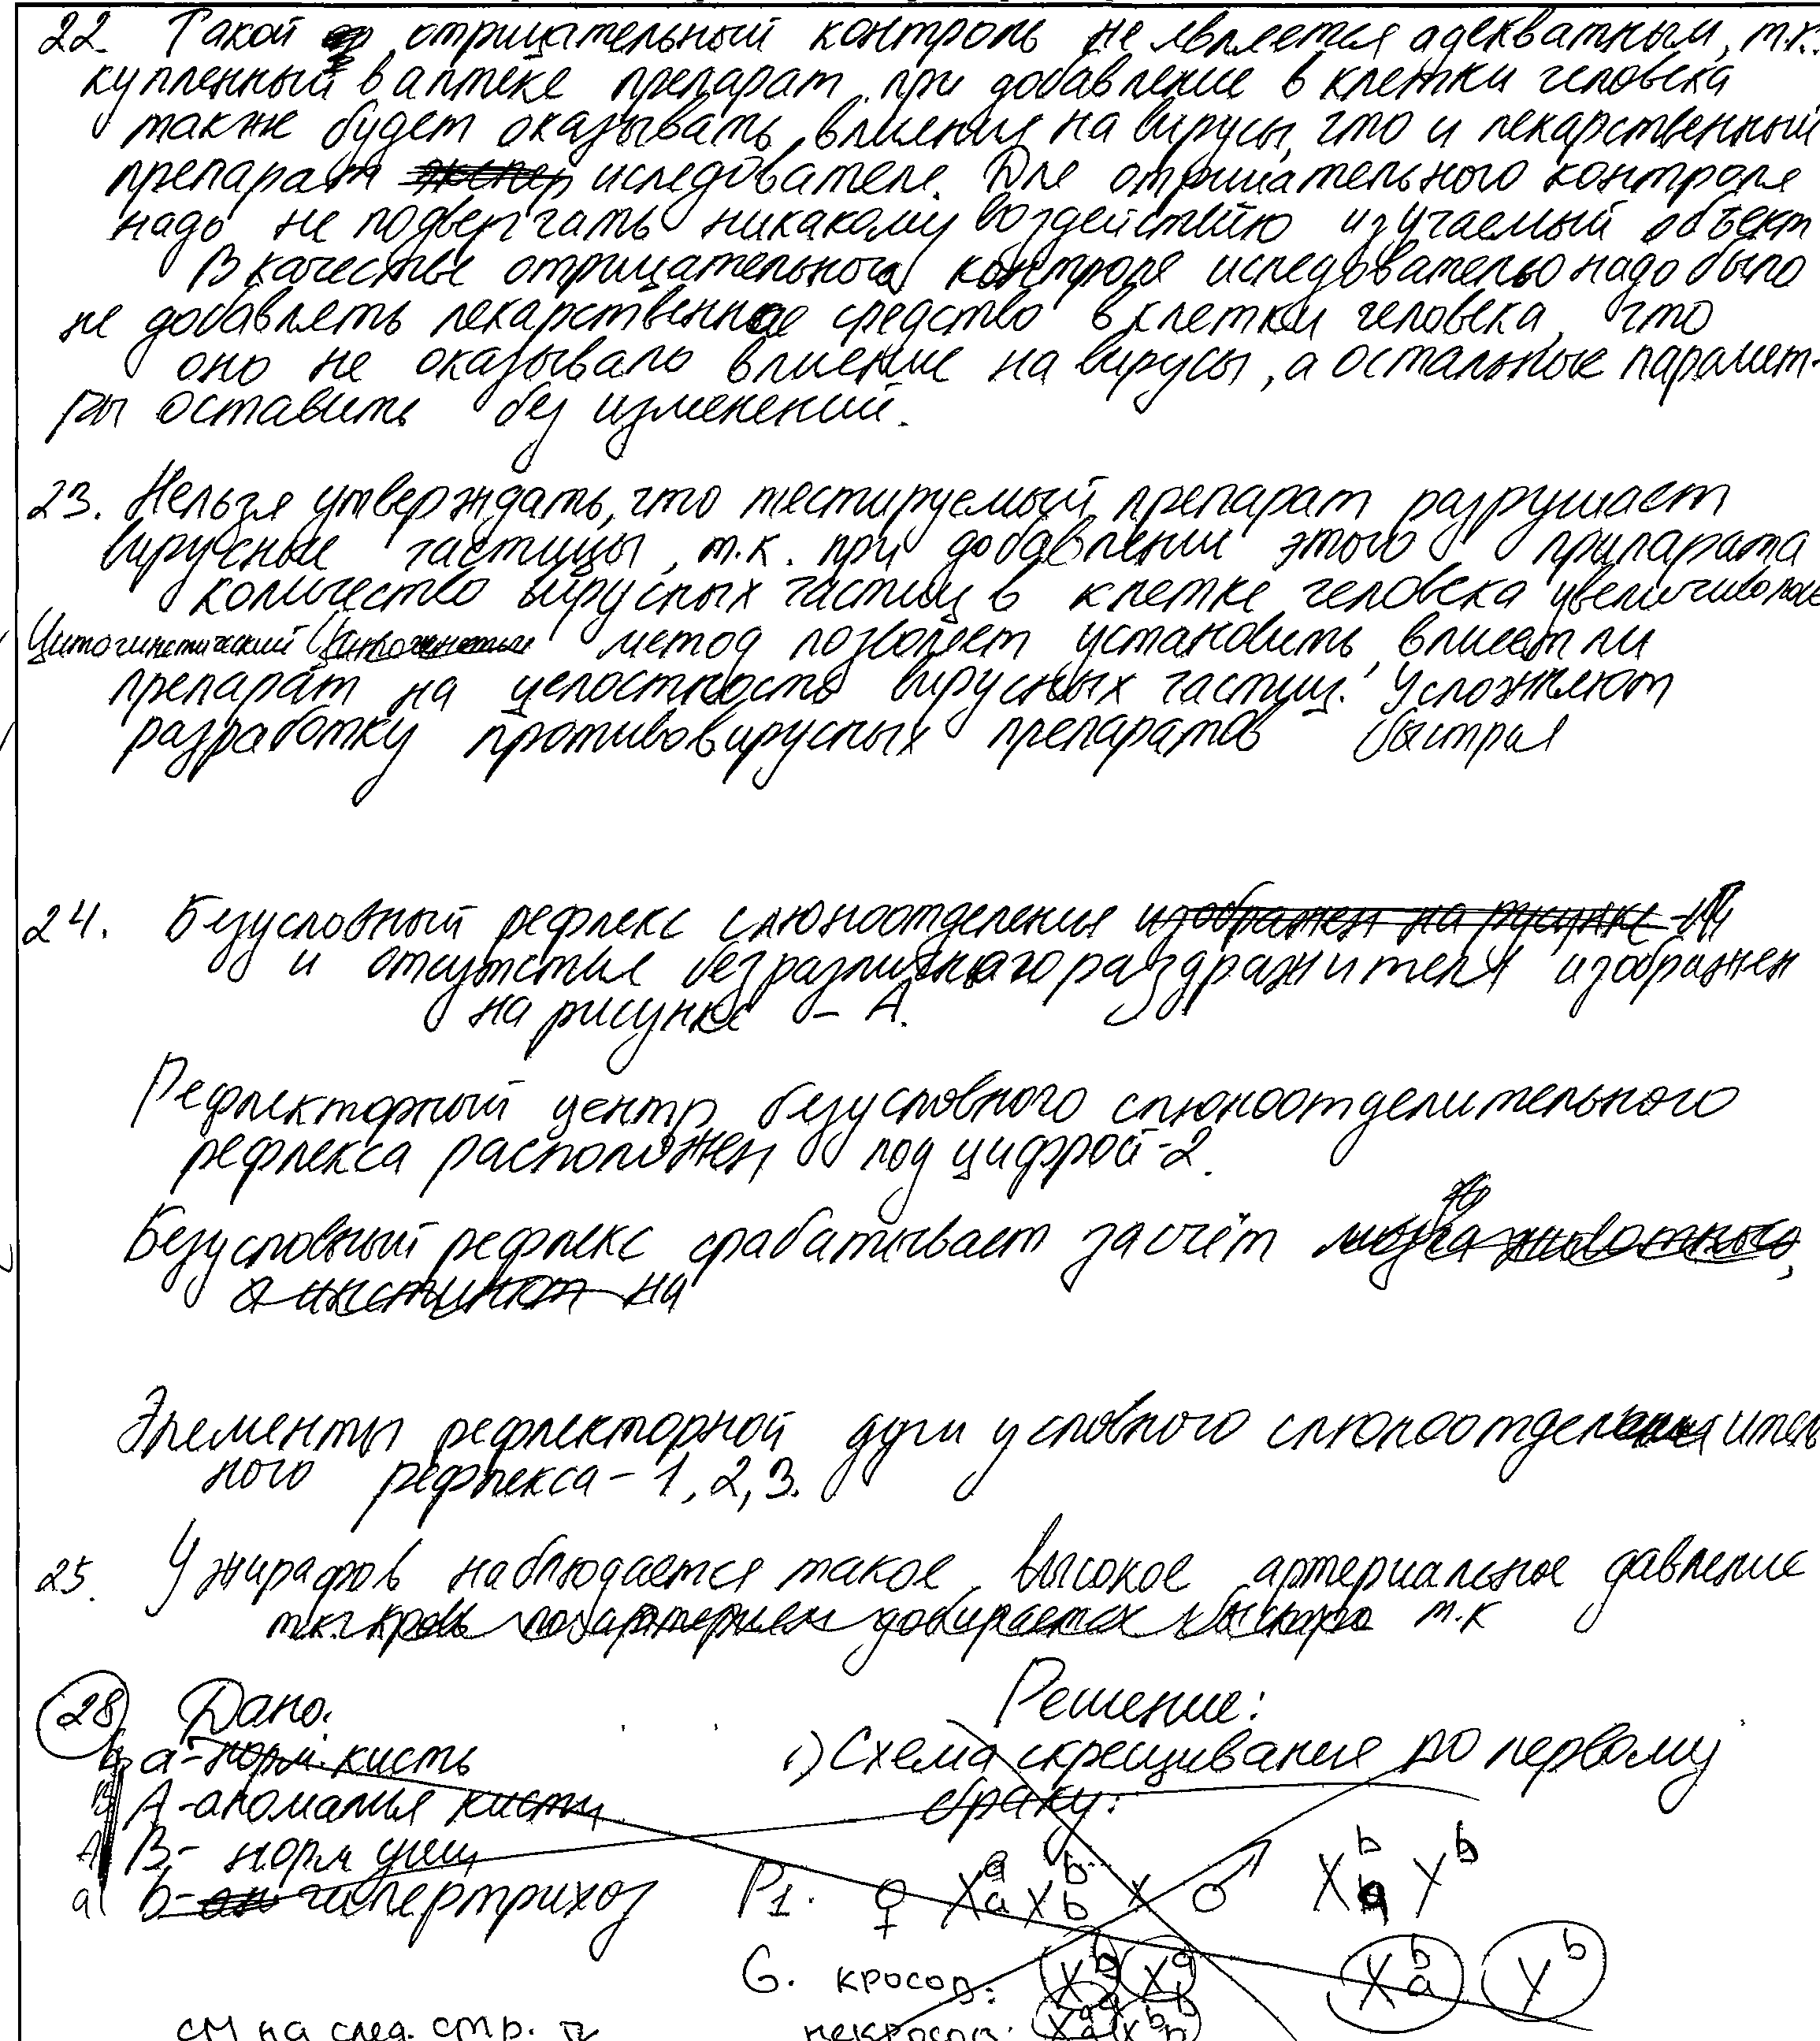 22. Такой отрицательный контроль не является адекватным, т.к.
купленный в аптеке препарат при добавление в клетки человека
также будет оказывать влияния на вирусы, что и лекарственный
препарат иследователя. Для отрицательного контроля
надо не подвергать никакому воздействию изучаемый объект
В качестве отрицательного контроля иследователю надо было
не добавлять лекарственное средство в клетки человека, что
оно не оказывало влияние на вирусы, а остальные парамет-
ры оставить без изменений.
23. Нельзя утверждать, что тестируемый препарат разрушает
вирусные частицы, т.к. при добавлении этого припарата
количество вирусных частиц в клетке человека
Цитогинетический метод позволяет установить, влияет ли
препарат на целостность вирусных частиц. Усложняют
разработку противовирусных препаратов быстрая
24. Безусловный рефлекс слюноотделения изображен на рисунке
и отсутствие безразличного раздражителя изображен
на рисунке – А.
Рефлекторный центр безусловного слюноотделительного
рефлекса расположен под цифрой-2.
Безусловный рефлекс срабатывает засчёт мозга животного,
а инстинкт на
Элементы рефлекторной дуги условного слюноотделитель
ного рефлекса – 1, 2, 3.
25. У жирафов наблюдается такое высокое артериальное давление
т.к. кровь по артериям добирается быстро т.к
28 Дано: Решение:
a - норм. кисть 1) Схема скрещивание по первому
A - аномалия кисти браку:
B - норм уши
b - гипертрихоз P1. ♀ X X x ♂ X Y
G. кросов:
см на след. стр. некросов: